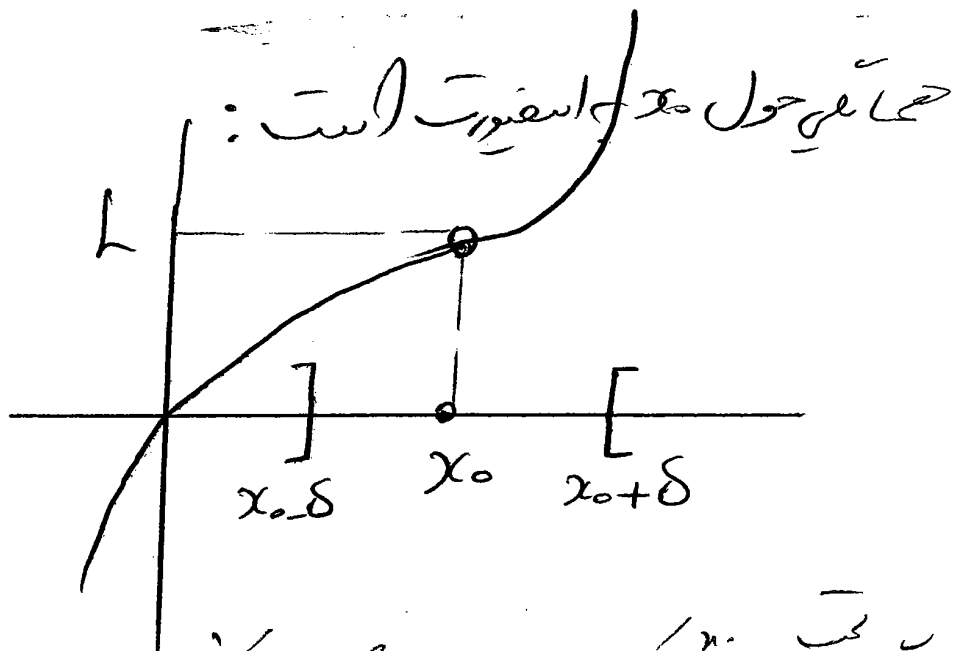 همسایگی حول x₀ به اینصورت است :
L
x₀-δ x₀ x₀+δ